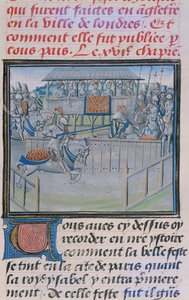 qui furent faites en agletere
en la ville de londres. Et
comment elle fut publiee p
tous pais. Le .xvi.e chapre.
Vous aues cy dessus oy
recorder en mre ystoire
comment la belle feste
se fist en la cite de paris quant
la royne ysabel y entra p̃miere
ment. de celle feste fut il gñs